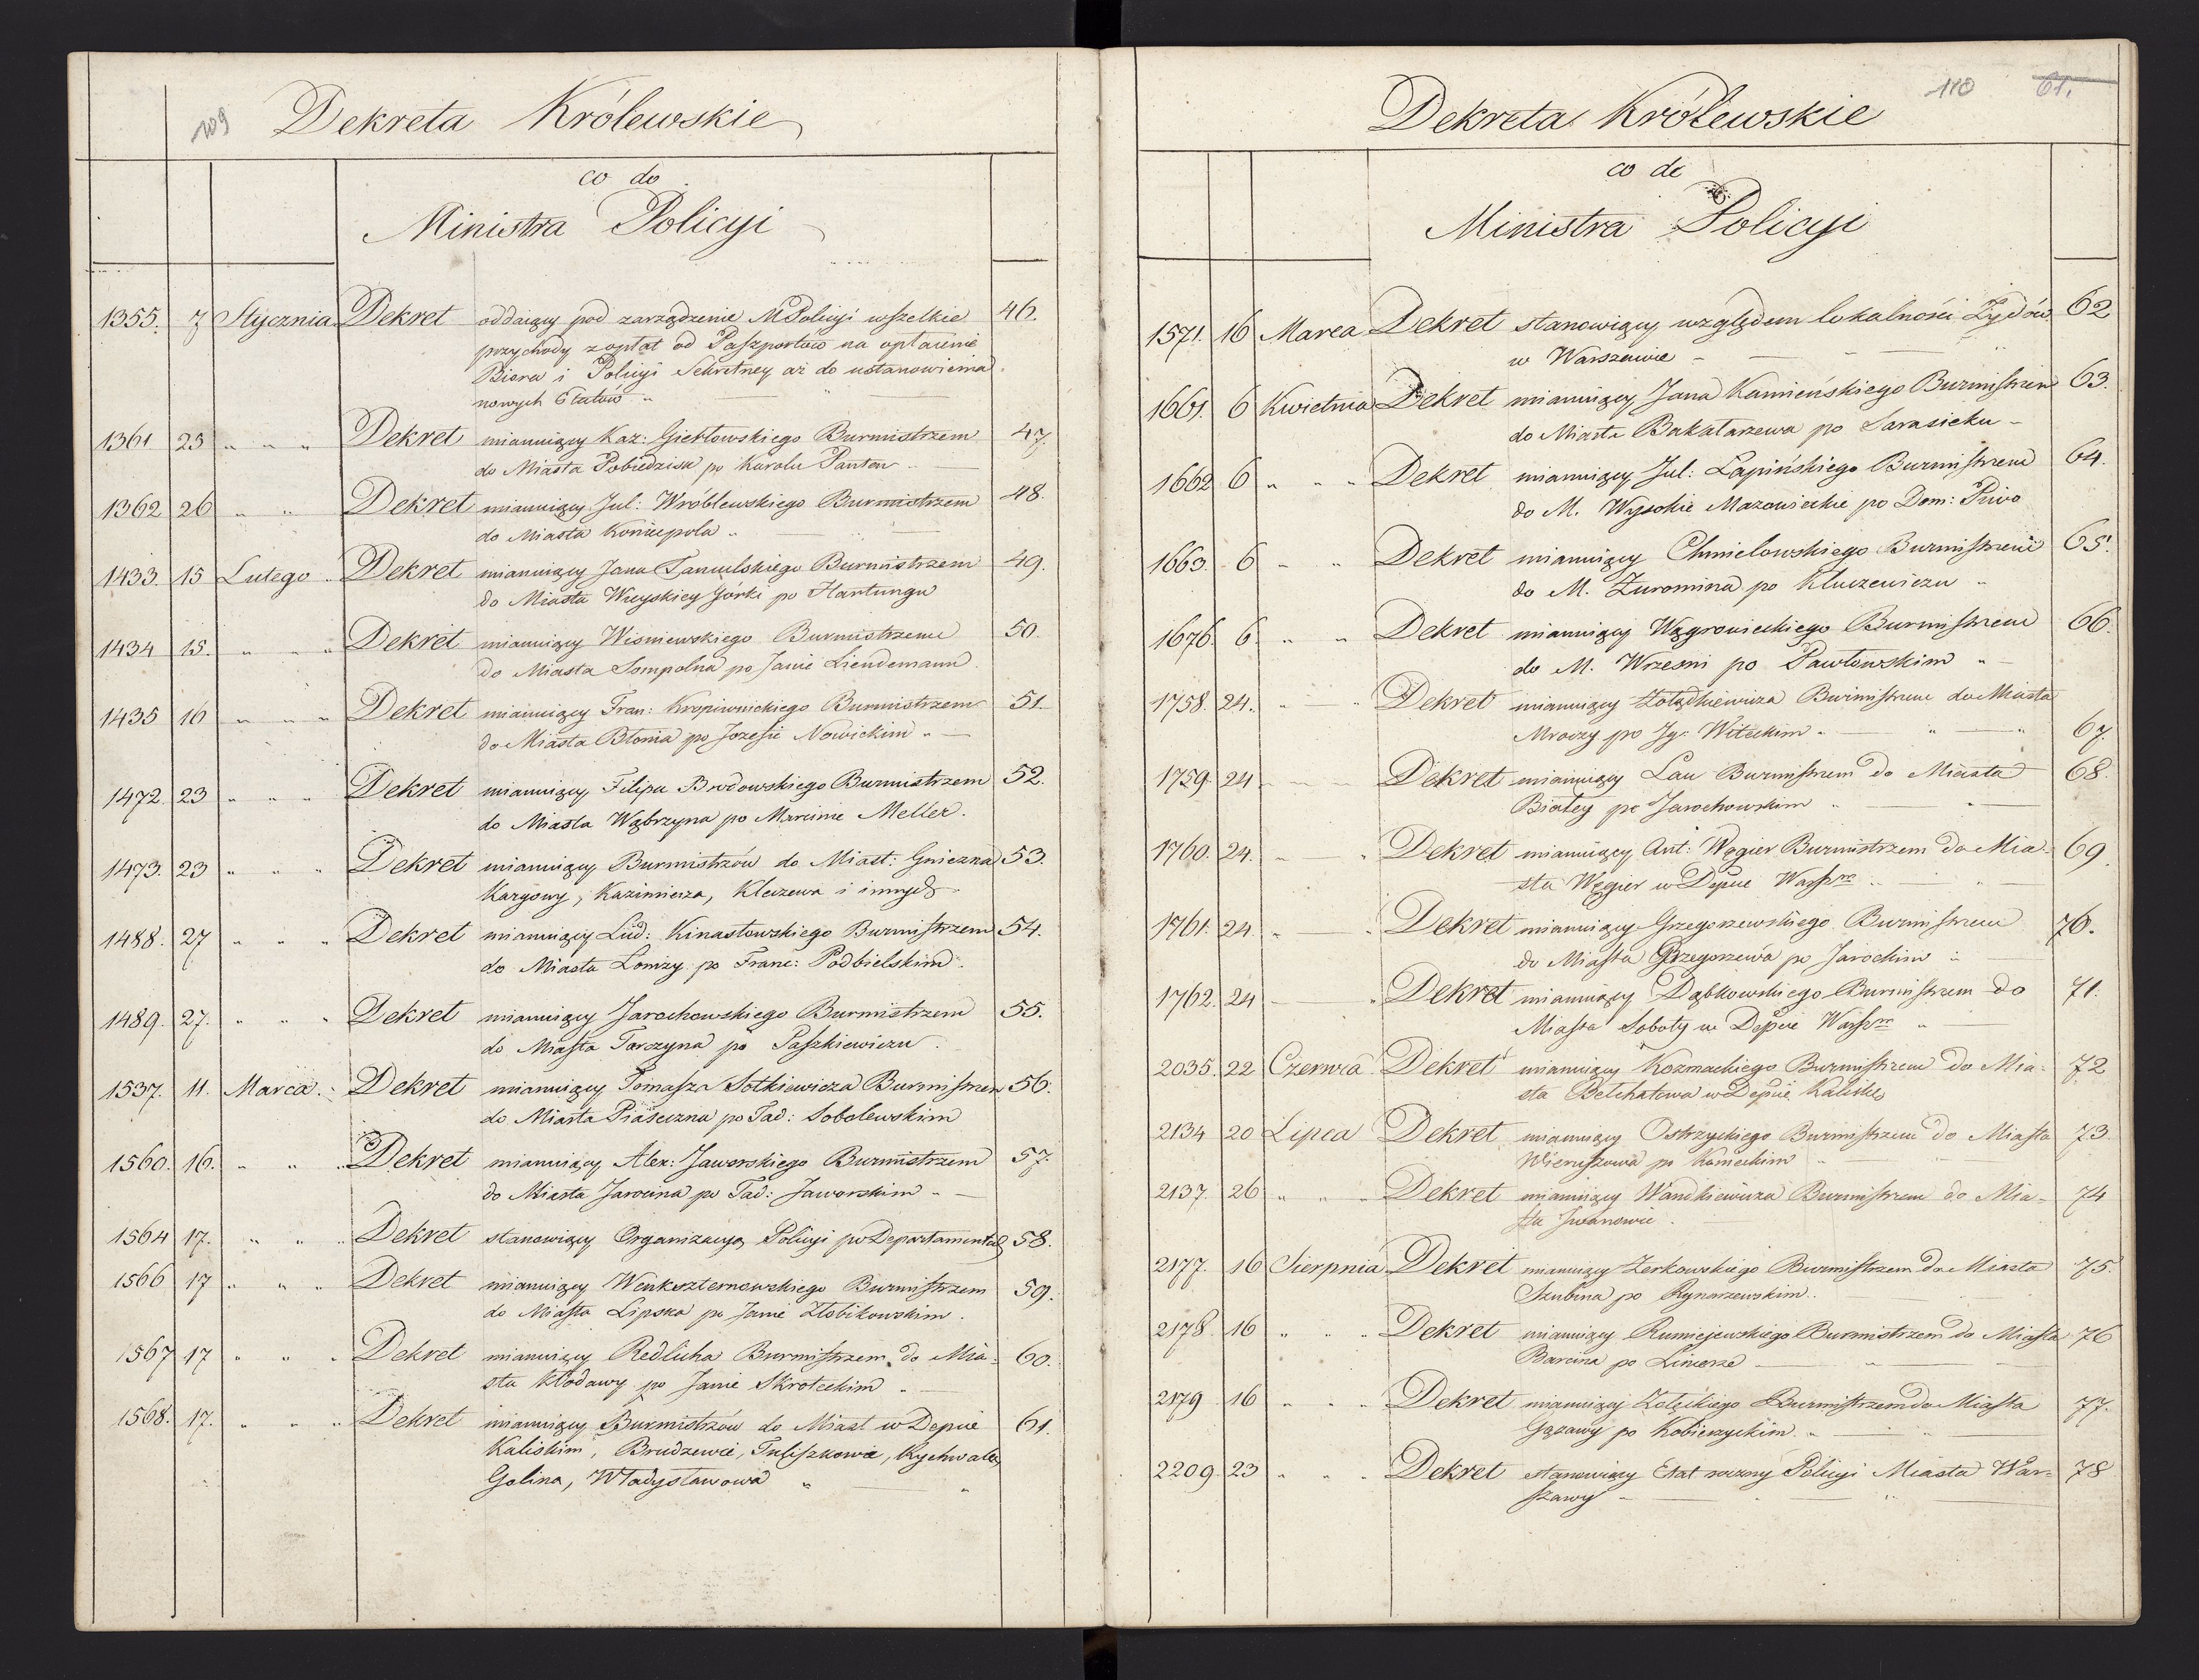 109
Dekreta Królewskie
co do
Ministra Policyi
1355. 7 Stycznia Dekret oddaiący pod zarządzenie M Policyi wszelkie 46.
przychody z opłat od Paszportów na opłacenie
Biora i Policyi Sekretney aż do ustanowienia
nowych Etatów „
1361 23 „ „ „ Dekret mianuiący Kaz: Giekłowskiego Burmistrzem 47.
do Miasta Pobiedzisk po Karolu Panten
1362 26 „ „ Dekret mianuiący Jul: Wróblewskiego Burmistrzem 48.
do Miasta Koniecpola „
1433. 15 Lutego Dekret mianuiący Jana Tamulskiego Burmistrzem 49.
do Miasta Wieyskiey Górki po Hartungu
1434 15. „ „ „ Dekret mianuiący Wisniewskiego Burmistrzem 50.
do Miasta Sompolna po Janie Liendemann
1435 16 „ „ „ Dekret mianuiący Fran: Kropiwnickiego Burmistrzem 51.
do Miasta Błonia po Jozefie Nowickim „ —
1472. 23 „ „ „ Dekret mianuiący Filipa Brodowskiego Burmistrzem 52.
do Miasta Wąbrzyna po Marcinie Meller.
1473. 23 „ „ „ Dekret mianuiący Burmistrzów do Miast: Gniezna 53.
Kargowy, Kazimierza, Kleczewa i innych
1488. 27 „ „ „ Dekret mianuiący Lud: Kinastowskiego Burmistrzem 54.
do Miasta Lomzy po Franc: Podbielskim.
1489. 27. „ „ „ Dekret mianuiący Jarochowskiego Burmistrzem 55.
do Miasta Tarczyna po Paszkiewiczu.
1537. 11. Marca. Dekret mianuiący Tomasza Sotkiewicza Burmistrzem 56.
do Miasta Piaseczna po Tad: Sobolewskim
1560. 16. „ „ „ Dekret mianuiący Alex: Jaworskiego Burmistrzem 57.
do Miasta Jarocina po Tad: Jaworskim „ —
1564 17. „ „ „ Dekret stanowiący Organizacyą Policyi po Departamentach 58.
1566 17 „ „ „ Dekret mianuiący Wenkszternowskiego Burmistrzem 59.
do Miasta Lipska po Janie Złobikowskim.
1567 17 „ „ „ Dekret mianuiący Redlicha Burmistrzem do Mia- 60.
sta Kłodawy po Janie Skroteckim „ —
1568. 17. „ „ „ Dekret mianuiący Burmistrzów do Miast w Depcie 61.
Kaliskim, Brudzewie, Tuliszkowie, Rychwale,
Golina, Władysławowa „ — „
110 61.
Dekreta Królewskie
co do
Ministra Policyi
1571. 16 Marca Dekret stanowiący względem lokalności Żydów 62
w Warszawie —
1661. 6 Kwietnia Dekret mianuiący Jana Kamieńskiego Burmistrzem 63.
do Miasta Bakałarzewa po Sarasieku —
1662 6 „ „ „ Dekret mianuiący Jul: Lapińskiego Burmistrzem 64.
do M. Wysokie Mazowieckie po Dom: Pivo
1663. 6 „ „ Dekret mianuiący Chmielowskiego Burmistrzem 65.
do M. Zuromina po Kluczewiczu „
1676. 6. „ „ Dekret mianuiący Wągrowieckiego Burmistrzem 66.
do M. Wrzesni po Pawłowskim „ —
1758. 24. „ „ Dekret mianuiący Żołądkiewicza Burmistrzem do Miasta
Mroczy po Jg: Witeckim „ — „ — „ 67.
1759. 24 — — Dekret mianuiący Lau Burmistrzem do Miasta 68.
Białey po Jarochowskim „ —
1760. 24. „ „ Dekret mianuiący Ant: Węgier Burmistrzem do Mia- 69.
sta Węgier w Depcie Warszm „ —
1761. 24. „ „ Dekret mianuiący Grzegorzewskiego Burmistrzem 70.
do Miasta Grzegorzewa po Jarochim „ —
1762. 24 — „ Dekret mianuiący Dąbkowskiego Burmistrzem do 71.
Miasta Soboty w Depcie Warszm „ —
2035. 22 Czerwca Dekret mianuiący Kozmackiego Burmistrzem do Mia- 72
sta Belchatowa w Depcie Kalisk.
2134 20 Lipca Dekret mianuiący Ostrzyckiego Burmistrzem do Miasta 73
Wieruszowa po Kameckim „
2137. 26 „ „ „ Dekret mianuiący Wandkiewicza Burmistrzem do Mia- 74
sta Jwanowic.
2177. 16 Sierpnia Dekret mianuiący Zerkowskiego Burmistrzem do Miasta 75.
Szubina po Rynarzewskim.
2178. 16 „ „ „ Dekret mianuiący Rumiejewskiego Burmistrzem do Miasta 76
Barcina po Limerze —
2179 16 „ „ „ Dekret mianuiący Zalęskiego Burmistrzem do Miasta 77.
Gąsawy po Kobierzyckim „
2209. 23 „ „ „ Dekret stanowiący Etat roczny Policyi Miasta War- 78
szawy —